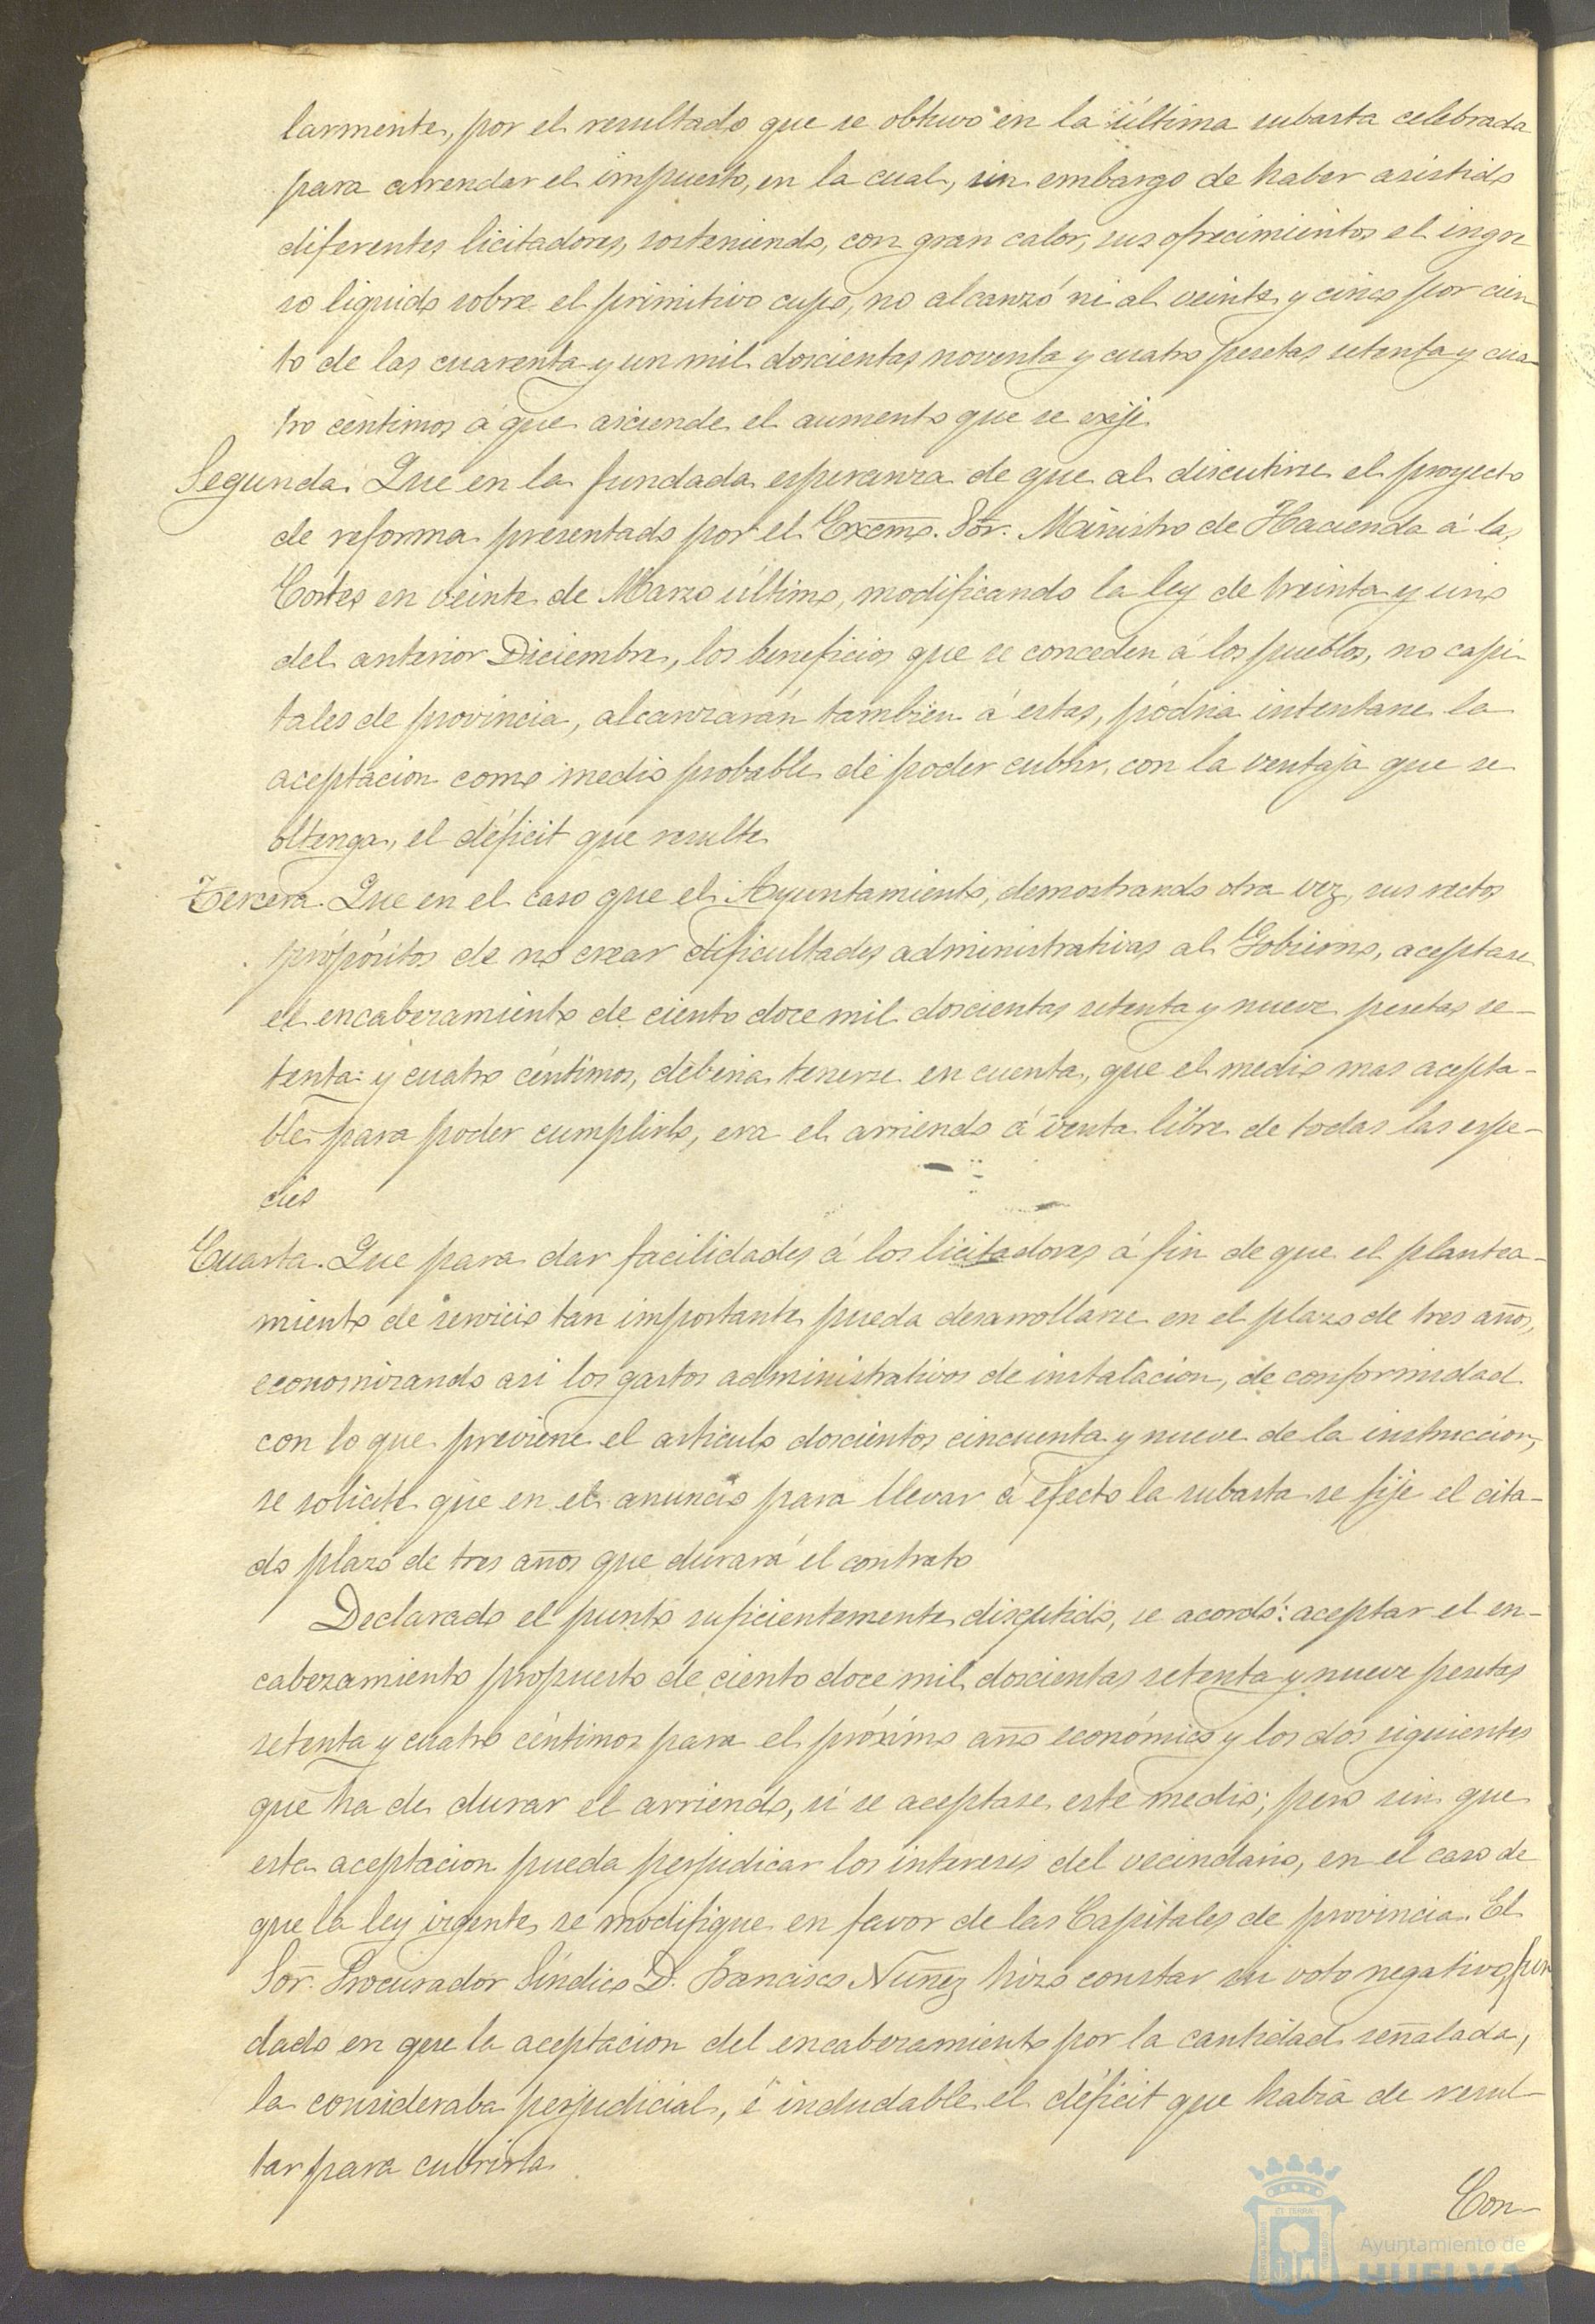 larmente, por el resultado que se obtuvo en la última subasta celebrada
para arrendar el impuesto, en la cual, sin embargo de haber asistido
diferentes licitadores, sosteniendo, con gran calor, sus ofrecimientos el ingre
so liquido sobre el primitivo cupo, no alcanzó ni al veinte y cinco por cien
to de las cuarenta y un mil doscientas noventa y cuatro pesetas setenta y cua-
tro céntimos á que asciende el aumento que se exije.
Segunda. Que en la fundada esperanza de que al discutirse el proyecto
de reforma presentado por el Excmo. Sor. Ministro de Hacienda á las
Cortes en veinte de Marzo último, modificando la ley de treinta y uno
del anterior Diciembre, los beneficios que se conceden á los pueblos, no capi-
tales de provincia, alcanzarán tambien á estas, pódria intentarse la
aceptacion como medio probable de poder cubrir, con la ventaja que se
obtenga, el déficit que resulte.
Tercera. Que en el caso que el Ayuntamiento, demostrando otra vez, sus rectos
própósitos de no crear dificultades administrativas al Gobierno, aceptase
el encabezamiento de ciento doce mil doscientas setenta y nueve pesetas se-
tenta y cuatro céntimos, deberia tenerse en cuenta, que el medio mas acepta-
ble para poder cumplirlo, era el arriendo á venta libre de todas las espe-
cies
Cuarta. Que para dar facilidades á los licitadores á fin de que el plantea-
miento de servicio tan importante pueda desarrollarse en el plazo de tres años,
economizando asi los gastos administrativos de instalacion, de conformidad
con lo que previene el articulo doscientos cincuenta y nueve de la instruccion,
se solicite que en el anuncio para llevar á efecto la subasta se fije el cita-
do plazo de tres años que durará el contrato
Declarado el punto suficientemente discutido, se acordó: aceptar el en-
cabezamiento propuesto de ciento doce mil doscientas setenta y nueve pesetas
setenta y cuatro céntimos para el próximo año económico y los dos siguientes
que ha de durar el arriendo, si se aceptase este medio; pero sin que
esta aceptacion pueda perjudicar los intereses del vecindario, en el caso de
que la ley vigente se modifique en favor de las Capitales de provincia. El
Sor. Procurador Síndico D. Francisco Nuñez hizo constar su voto negativo, fun
dado en que la aceptacion del encabezamiento por la cantidad señalada,
la consideraba perjudicial, é indudable el déficit que habrá de resul-
tar para cubrirla.
Con-
Ayuntamiento de
HUELVA